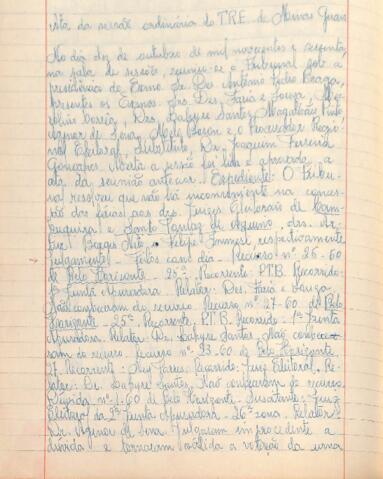 Ata da sessão ordinária do TRE de Minas Gerais
No dia dez de outubro de mil novecentos e sessenta,
na sala de sessões, reuniu-se o Tribunal sob a
presidência do Exmo. Sr. Des. Antônio Pedro Braga,
presentes os Exmos. Srs. Des. Faria e Sousa,
Corrêa, Drs. Dapyre Santos, Magalhães Pinto,
Agenor de Sena, e o Procurador Regio-
nal Eleitoral, Substituto, Dr. Joaquim Ferreira
Gonçalves. Aberta a sessão foi lida e aprovada a
ata da reunião anterior. Expediente: O Tribu-
nal resolveu que não há inconveniente na conces-
são das férias aos drs. Juizes Eleitorais de Cam-
buquira e Santo Tomaz de Aquino, drs. Ar-
e Felipe Immesi, respectivamente.
Julgamento - Feitos com dia - Recurso nº 26-60
de Belo Horizonte - 25ª. Recorrente: P.T.B. Recorrido:
Junta Apuradora. Relator: Des. Faria e Sousa.
Não conheceram do recurso. Recurso nº 27-60 de Belo
Horizonte - 25ª. Recorrente, P.T.B. Recorrido: 1ª Junta
Apuradora. Relator: Dr. Dapyre Santos. Não conhece-
ram do recurso. Recurso nº 23-60 de Belo Horizonte,
Recorrente: Recorrido: Juiz Eleitoral. Re-
lator: Dr. Dapyre Santos. Não conheceram do recurso.
Dúvida nº 1-60 de Belo Horizonte. Suscitante: Juiz
Eleitoral da 2ª Junta Apuradora - 26ª zona. Relator:
Dr. Agenor de Sena. Julgaram improcedente a
dúvida e tornaram válida a votação da urna